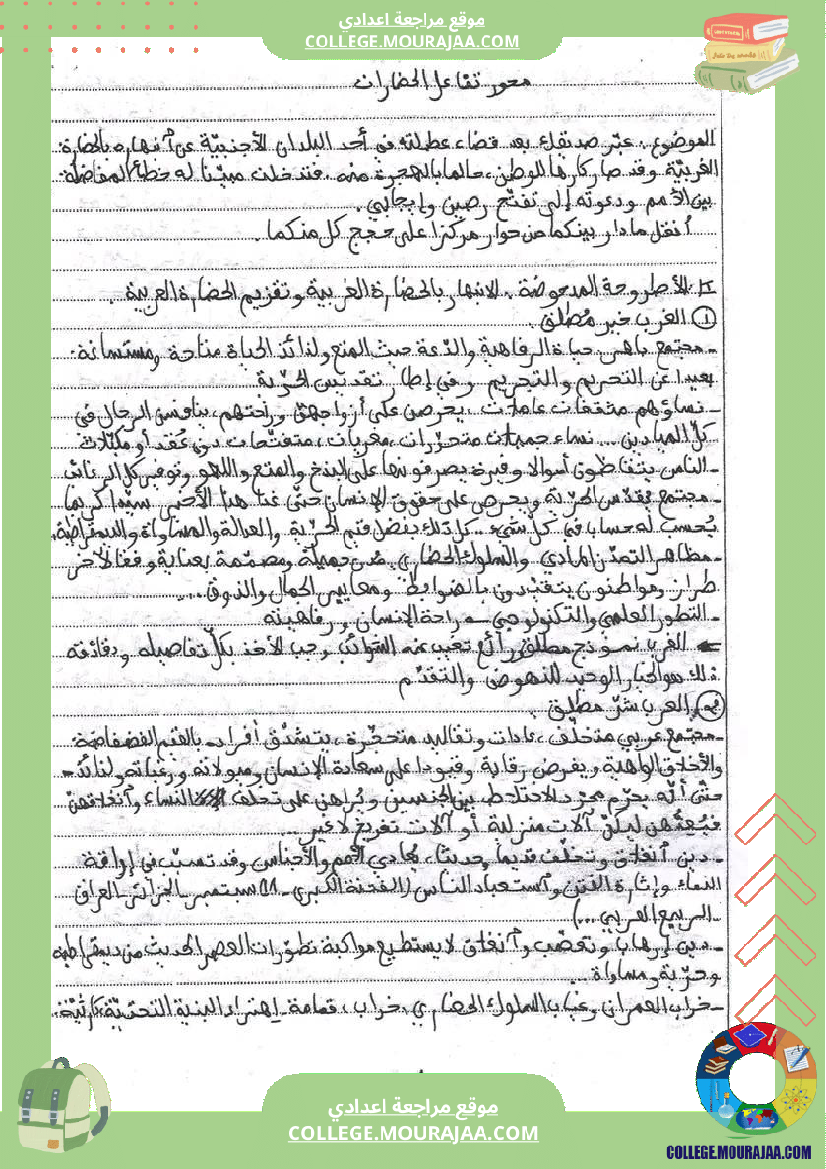 موقع مراجعة اعدادي
COLLEGE.MOURAJAA.COM
محور تفاعل الحضارات
الموضوع: عبّر صديقك بعد قضاء عطلته في أحد البلدان الأجنبيّة عن انبهاره بالحضارة
الغربيّة وقد صار كارها للوطن، حالما بالهجرة منه. فتدخلت مبيّنا له خطأ المفاضلة
بين الأمم ودعوته إلى تفتّح رصين وإيجابي.
أنقل ما دار بينكما من حوار مركزا على حجج كل منكما.
الأطروحة المدحوضة: الانبهار بالحضارة الغربية وتقزيم الحضارة العربية.
① الغرب خير مُطلق.
- مجتمع باهر: حياة الرفاهية والدّعة حيث المتع ولذائذ الحياة متاحة ومستساغة
بعيدا عن التحريم والتجريم وفي إطار تقديس الحرّية
- نساؤهم مثقفات عاملات، يحرصن على أزواجهنّ وراحتهم، ينافسن الرجال في
كلّ الميادين... نساء جميلات متحرّرات، مغريات، متفتّحات دون عُقد أو مكبّلات
- الناس يتقاضون أموالا وفيرة يصرفونها على البذخ والمتع واللهو وتوفير كل الرغائب
- مجتمع يقدّس الحرّية ويحرص على حقوق الإنسان حتّى غدا هذا الأخير سيّدا كريما
يُحسب له حساب في كل شيء.. كل ذلك بفضل قيم الحرّية والعدالة والمساواة والديمقراطية.
- مظاهر التمدّن المادي والسلوك الحضاري: مدن جميلة ومصمّمة بعناية وفقا لآخر
طراز، ومواطنون يتقيّدون بالضوابط ومعايير الجمال والذوق....
- التطور العلمي والتكنولوجي ← راحة الإنسان ورفاهيته
← الغرب نموذج مطلق رائع تغيب عنه الشوائب وجب الأخذ بكلّ تفاصيله ودقائقه
ذلك هو الخيار الوحيد للنهوض والتقدّم
② العرب شرّ مطلق.
- مجتمع عربي متخلّف، عادات وتقاليد متحجّرة، يتشدّق أفراده بالقيم الفضفاضة
والأخلاق الواهية، ويفرض رقابة وقيودا على سعادة الإنسان وميولاته ورغباته ولذائذه
حتّى أنّه يحرّم مجرّد الاختلاط بين الجنسين ويُراهن على تخلّف النساء وانغلاقهنّ
ليكنّ آلات منزلية أو آلات تفريخ لا غير...
- دين انغلاق وتخلّف قديما وحديثا، يعادي الأمم والأجناس وقد تسبّب في إراقة
الدماء وإثارة الفتن واستعباد الناس (الفتنة الكبرى - 11 سبتمبر - الجزائر - العراق
- الربيع العربي...)
- دين إرهاب وتعصّب وانغلاق لا يستطيع مواكبة تطوّرات العصر الحديث من ديمقراطية
وحرّية ومساواة...
- خراب العمران وغياب السلوك الحضاري: خراب، قمامة، اهتراء البنية التحتيّة
موقع مراجعة اعدادي
COLLEGE.MOURAJAA.COM
COLLEGE.MOURAJAA.COM